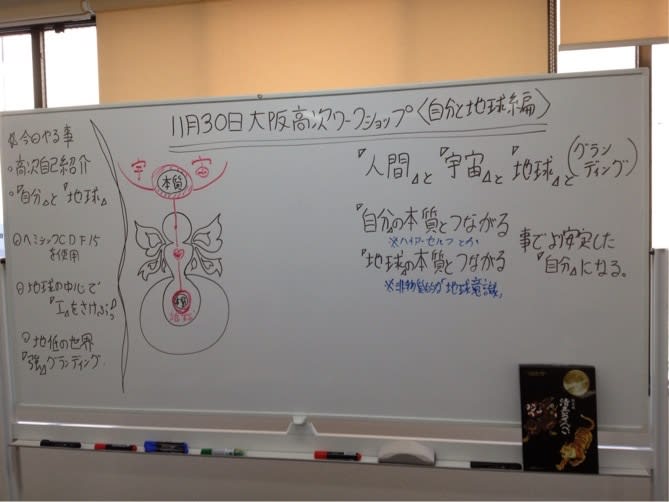 11月30日大阪高次ワークショップ〈自分と地球編〉
※今日やる事
○高次自己紹介
○『自分』と『地球』
○ヘミシンクCD F15
を使用
○地球の中心で
『エ』をさけぶ
○地低の世界
『強』グランディング
宇 宙
本質
本質
地球
『人間』と『宇宙』と『地球』と(グランディング)
『自分』の本質とつながる
※ハイアーセルフとか
『地球』の本質とつながる
※非物質的な『地球意識』
事でより安定した
『自分』になる。